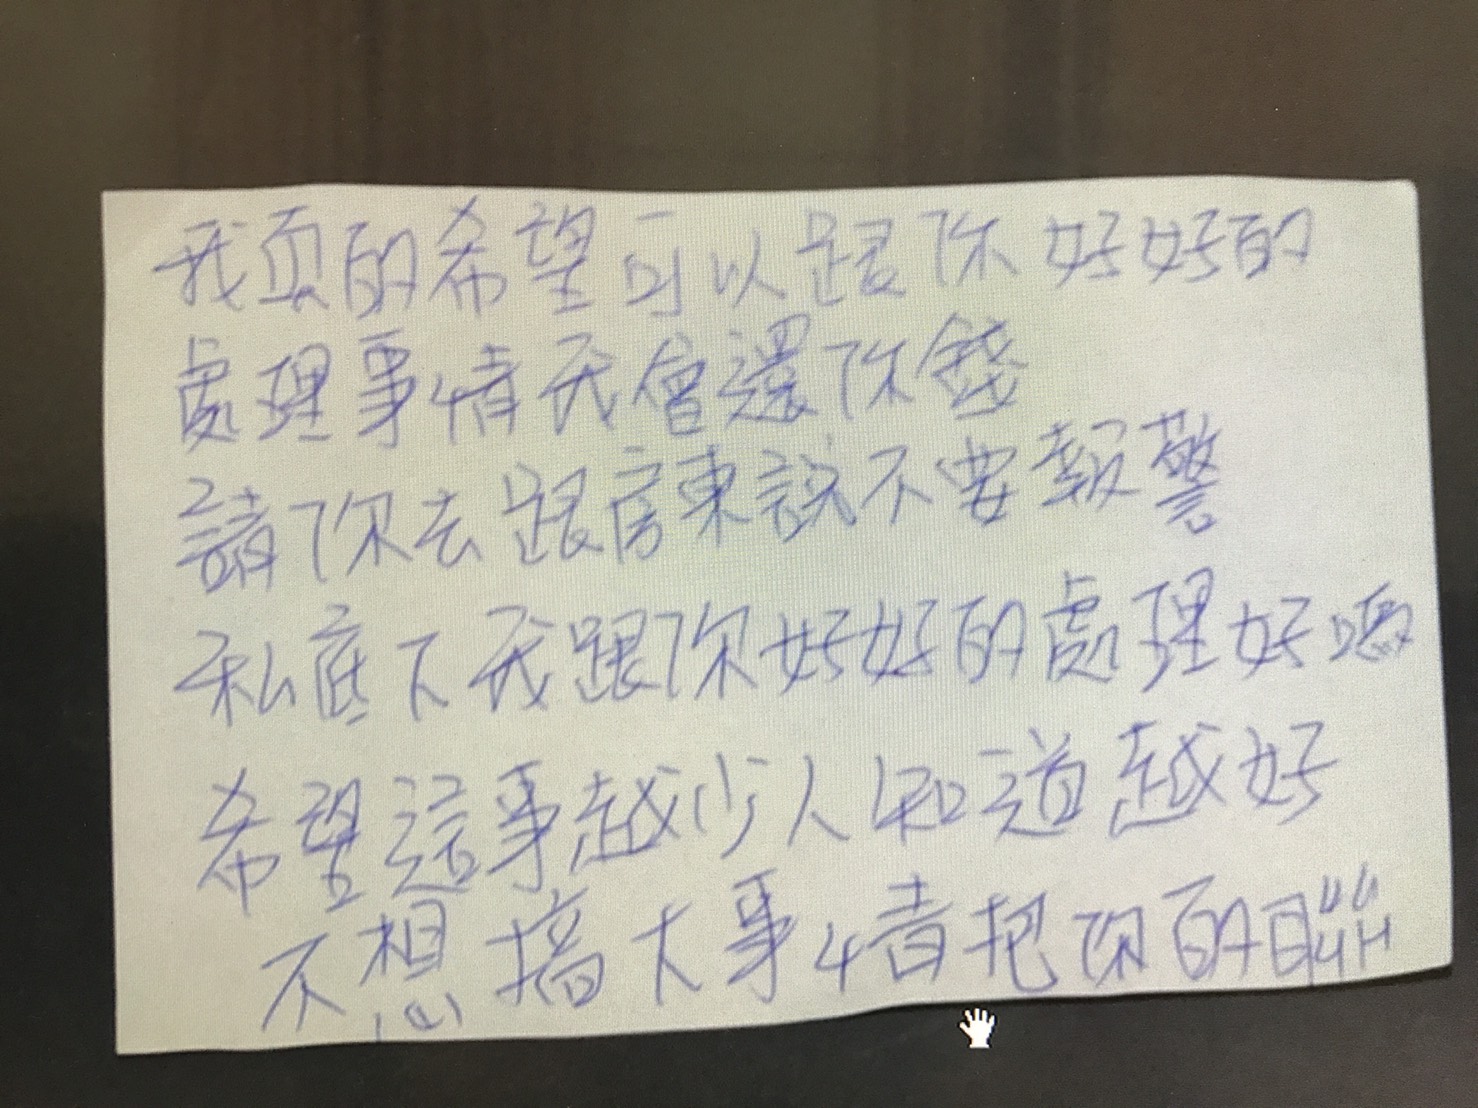 我真的希望可以跟你好好的
處理事情我會還你錢
請你去跟房東說不要報警
私底下我跟你好好的處理好嗎
希望這事越少人知道越好
不想搞大事情把你的聯